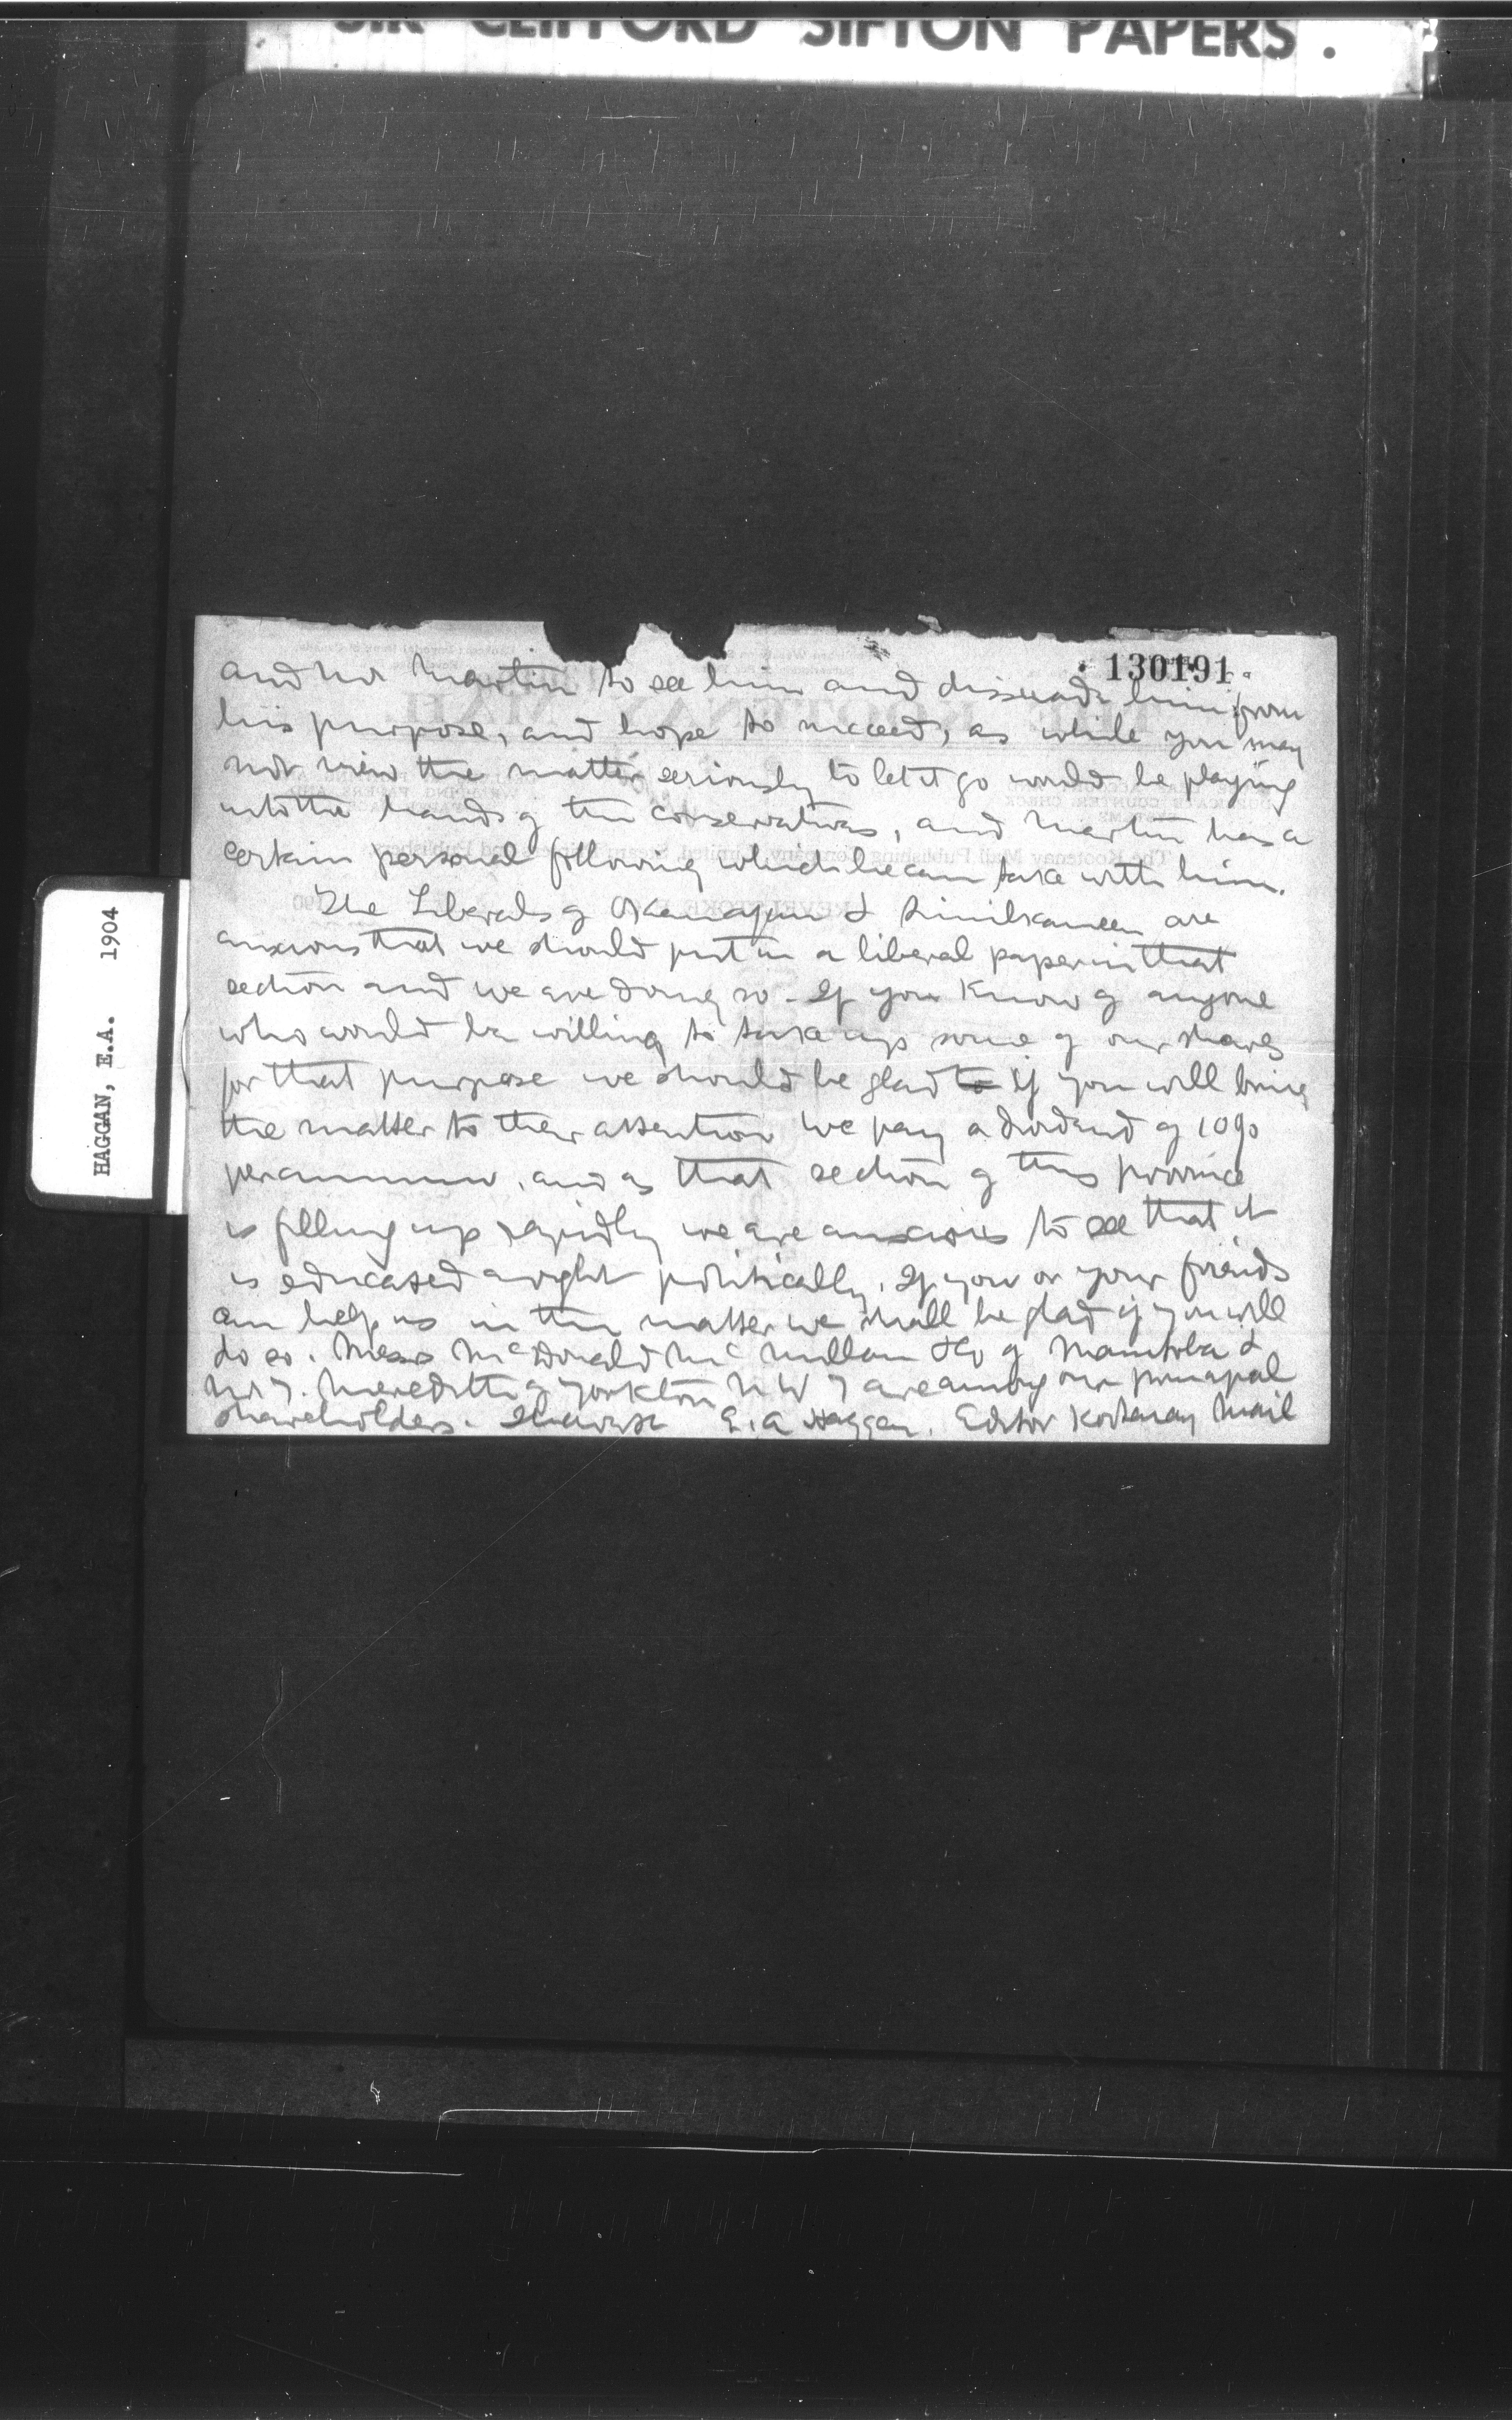 SIR CLIFFORD SIFTON PAPERS.
130191
HAGGAN, E.A. 1904
and Mr Martin to see him and dissuade him from
his purpose, and hope to succeed, as while you may
not view the matter seriously to let it go would be playing
into the hands of the conservatives, and Martin has a
certain personal following which he can take with him.
The Liberals of Okanagan & Similkameen are
anxious that we should put in a liberal paper in that
section and we are doing so. If you know of anyone
who would be willing to take up some of our shares
for that purpose we should be glad to if you will bring
the matter to their attention we pay a dividend of 10%
per annum, and as that section of this province
is filling up rapidly we are anxious to see that it
is educated aright politically. If you or your friends
can help us in the matter we shall be glad if you will
do so. Messrs McDonald McMillan & Co of Manitoba &
Mr J. Meredith of Yorkton N W T are among our principal
shareholders. E. A Haggan. Editor Kootenay Mail